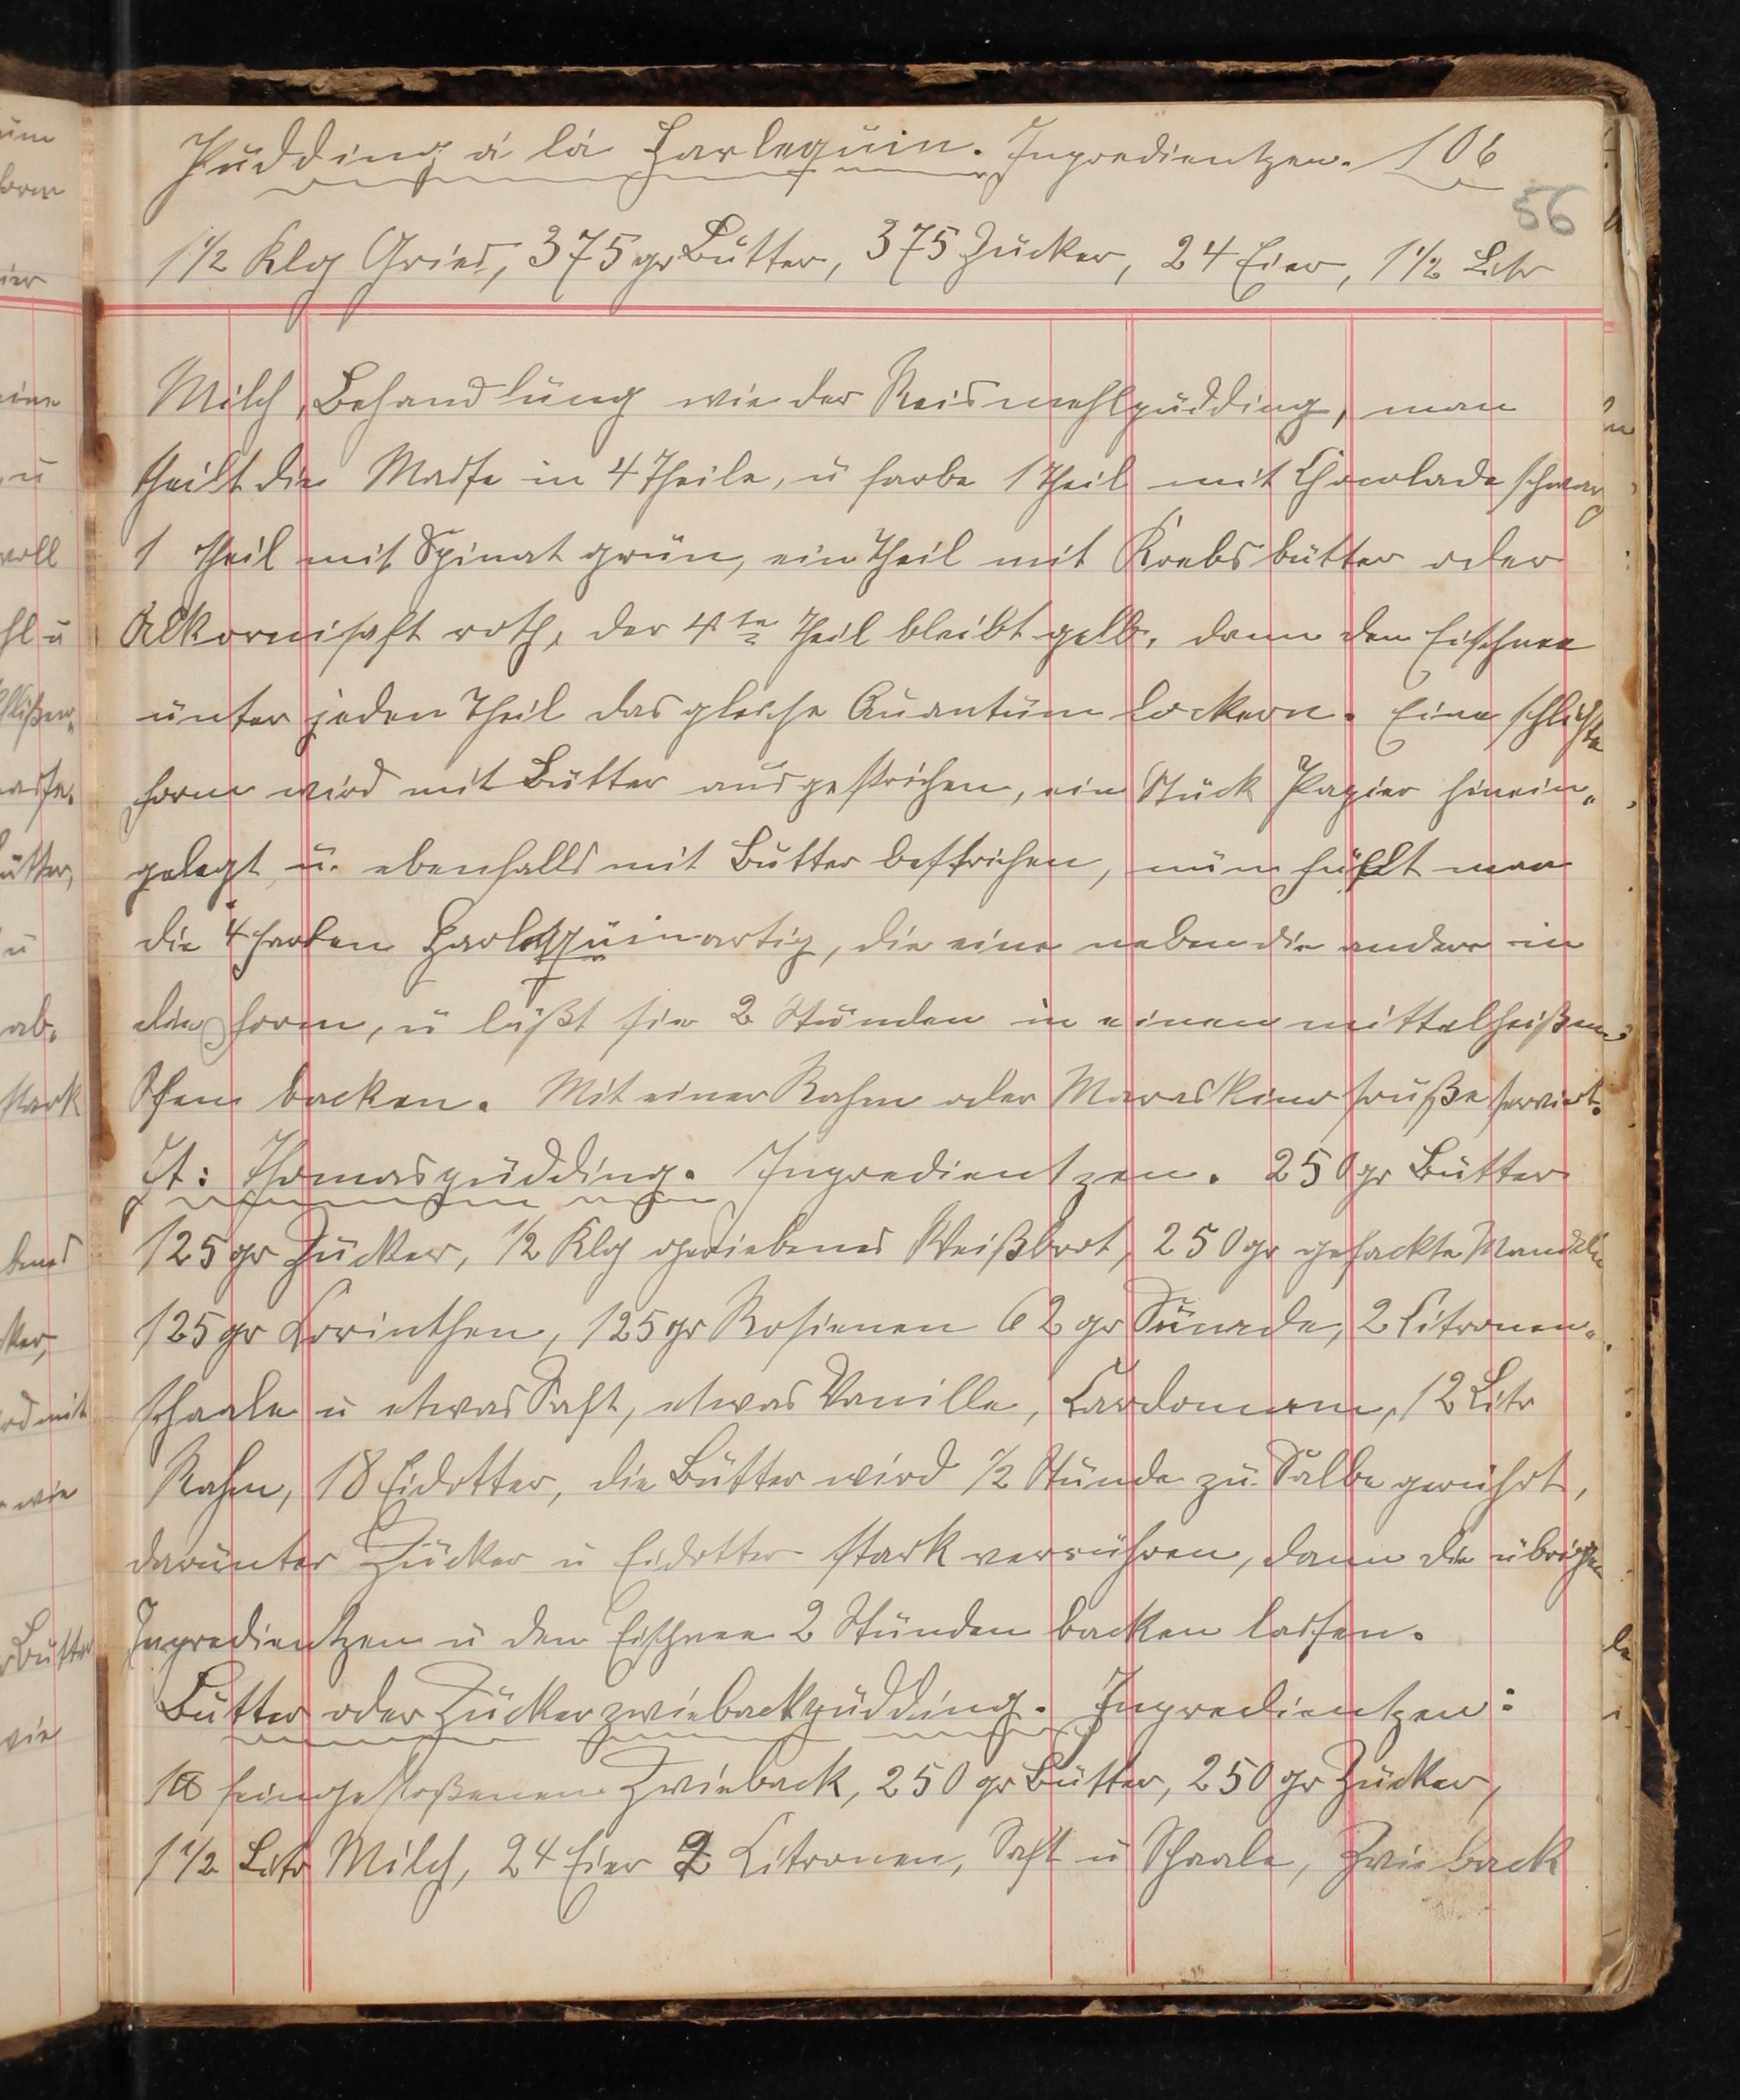 Pudding á lá Harlequin. Ingredientzen. 106
56
1 1/2 Klg Gries, 375 gr Butter, 375 Zucker, 24 Eier, 1 1/2 Litr
Milch, Behandlung wie der Reismehlpudding, man
theilt die Masse in 4 Theile, u farbe 1 Theil mit Chocolade schwarz
1 Theil mit Spinat grün, ein Theil mit Krebsbutter oder
Alkermisaft roth, der 4te Theil bleibt gelb, dann den Eischnee
unter jeden Theil das gleiche Quantum lockern. Eine schlichte
Form wird mit Butter ausgestrichen, ein Stück Papier hinein-
gelegt u. ebenfalls mit Butter bestrichen, nun füllt man
die 4 Farben Harlequinartig, die eine neben die andere in
die Form, u läßt sie 2 Stunden in einen mittelheißen
Ofen backen. Mit einer Rahm oder Maraskino sauße servirt.
St: Thomaspudding. Ingredientzen. 250 gr Butter
125 gr Zucker, 1/2 Klg geriebenes Weißbrot, 250 gr gehackte Mandeln
125 gr Corinthen, 125 gr Rosienen 62 gr Sucade, 2 Citronen-
schaale u etwas Saft, etwas Vanille, Cardomom, 12 Litr
Rahm, 18 Eidotter, die Butter wird 1/2 Stunde zu Salbe gerührt,
darunter Zucker u Eidotter stark verrühren, dann die übrigen
Ingredientzen u den Eischnee 2 Stunden backen lassen.
Butter oder Zuckerzwiebackpudding. Ingredientzen:
feingestoßenen Zwieback, 250 gr Butter, 250 gr Zucker,
1 1/2 Litr Milch, 24 Eier 2 Citronen, Saft u Schaale, Zwieback